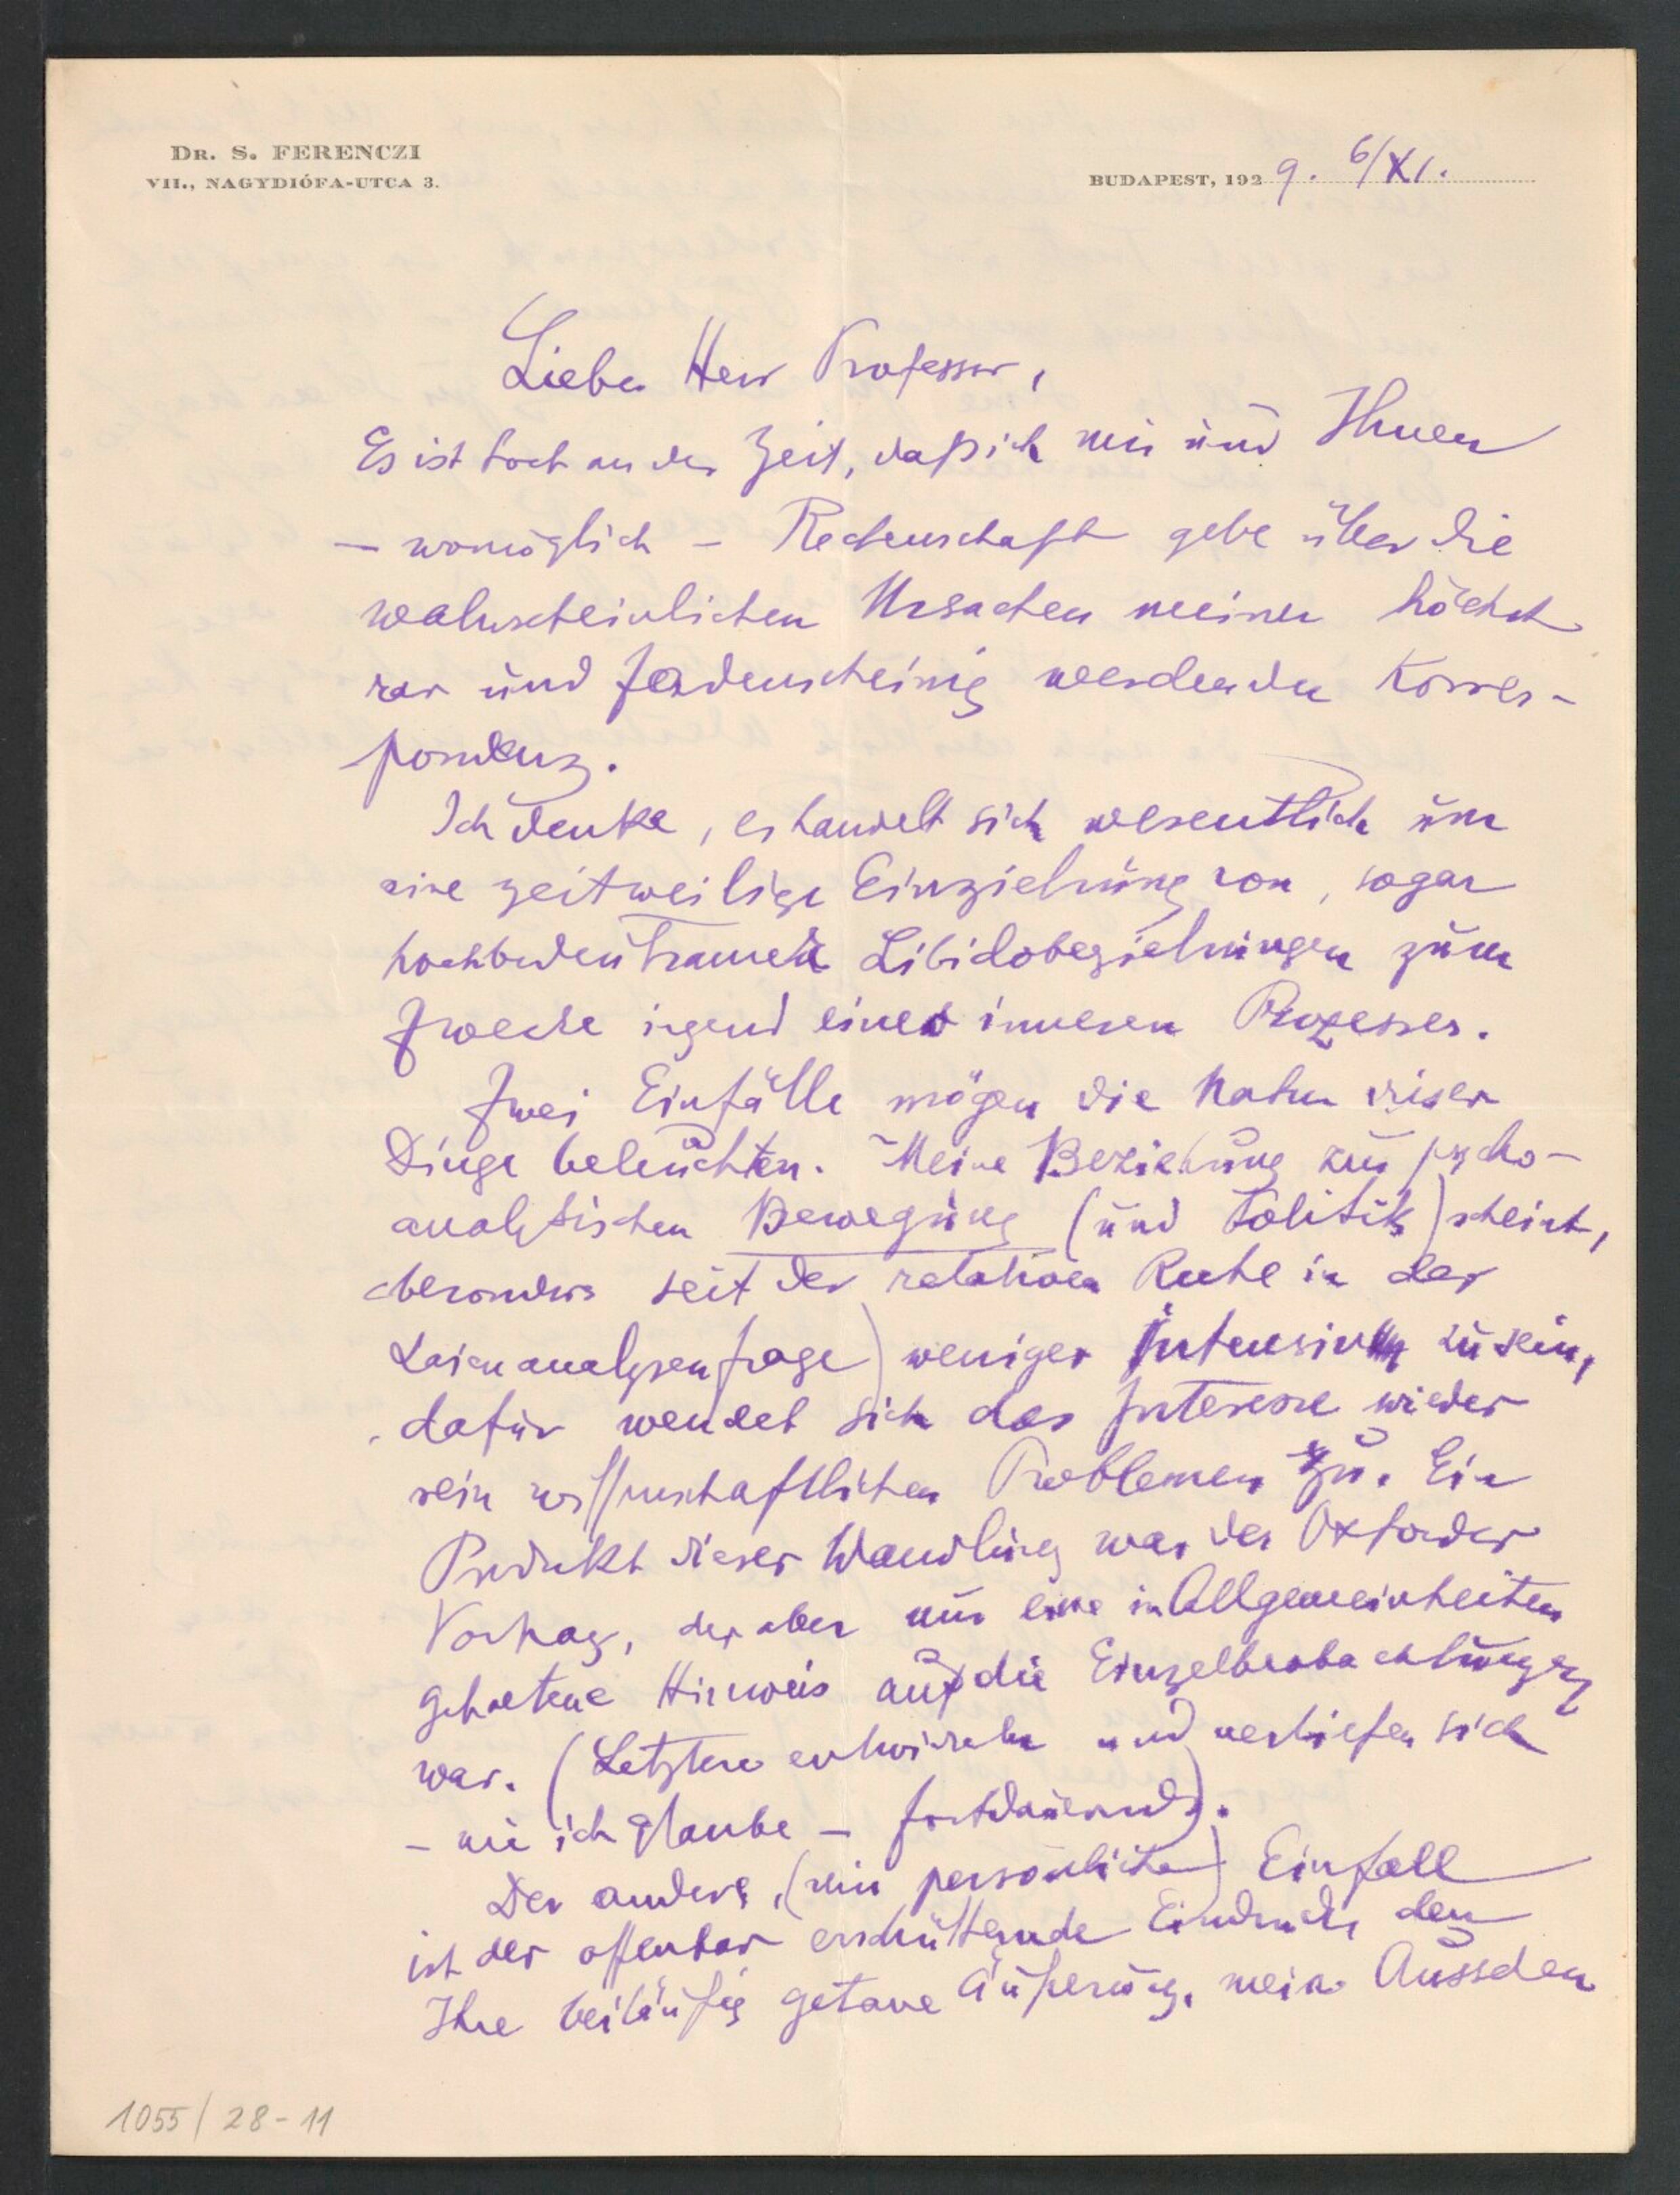 DR. S. FERENCZI
VII., NAGYDIÓFA-UTCA 3.
BUDAPEST, 1929. 6/XI.
Lieber Herr Professor,
Es ist hoch an der Zeit, daß ich mir und Ihnen
– womöglich – Rechenschaft gebe über die
wahrscheinlichen Ursachen meiner höchst
rar und fadenscheinig werdenden Korres-
pondenz.
Ich denke, es handelt sich wesentlich um
eine zeitweilige Einziehung von, sogar
hochbedeutsamen Libidobeziehungen zum
Zwecke irgend eines inneren Prozesses.
Zwei Einfälle mögen die Natur dieser
Dinge beleuchten. Meine Beziehung zur psycho-
analytischen Bewegung (und Politik) scheint,
(besonders seit der relativen Ruhe in der
Laienanalysenfrage) weniger intensiv zu sein,
dafür wendet sich das Interesse wieder
rein wissenschaftlichen Problemen zu. Ein
Produkt dieser Wandlung war der Oxforder
Vortrag, der aber nur eine in Allgemeinheiten
gehaltene Hinweis auf die Einzelbeobachtungen
war. (Letztere entwickeln und vertiefen sich
– wie ich glaube – fortdauernd).
Der andere, (rein persönliche) Einfall
ist der offenbar erschütternde Eindruck den
Ihre beiläufig getane Äußerung, mein Aussehen
1055/28-11